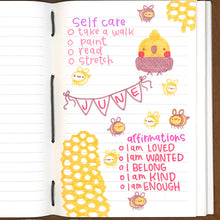 self care
take a walk
paint
read
stretch
JUNE
affirmations
I am LOVED
I am WANTED
I BELONG
I am KIND
I am ENOUGH